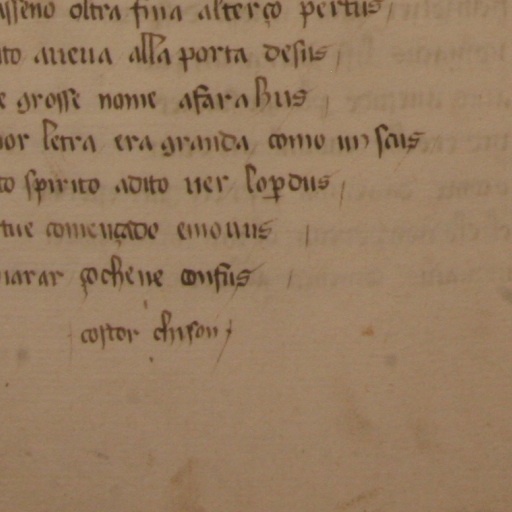 asseno oltra fina alterço pertus
ito aueua alla porta desus
e grosse nome afarabus
or letra era granda como un scus
to spirito adito uer lo perdus
tue començade emouus
iarar çochene confus
costor chison